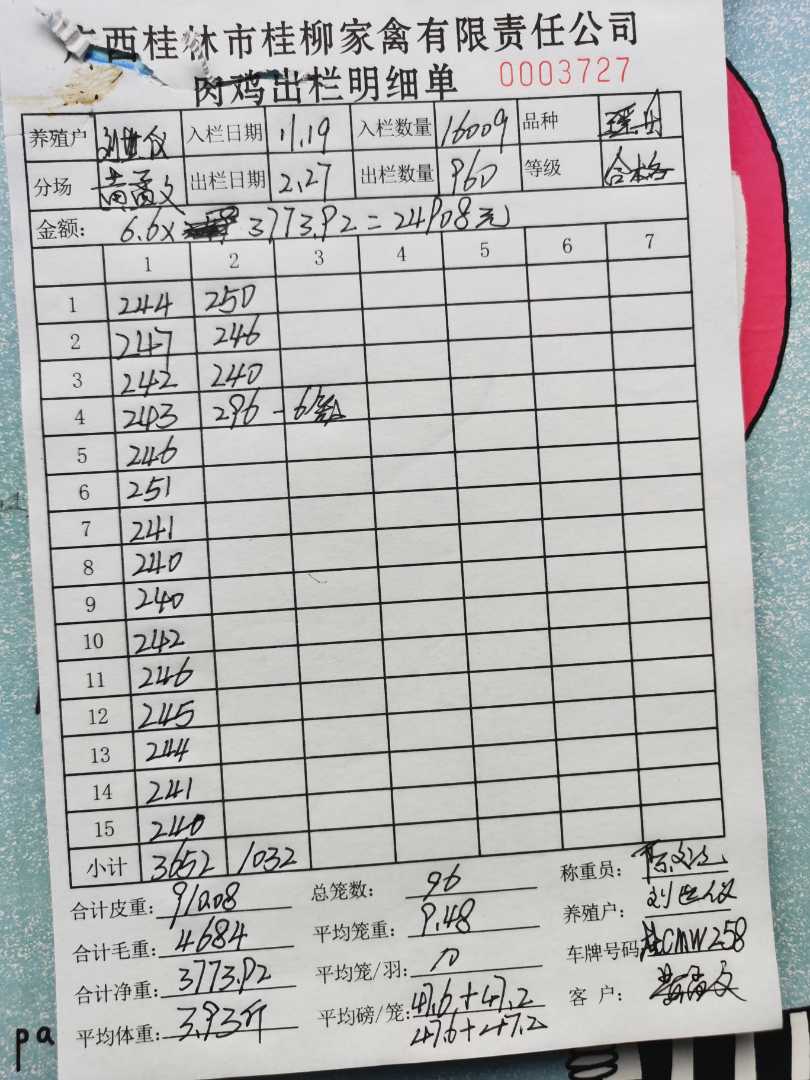 广西桂林市桂柳家禽有限责任公司
肉鸡出栏明细单 0003727
养殖户 刘世仪 入栏日期 11.19 入栏数量 16009 品种 瑶丹
分场 黄高文 出栏日期 2.27 出栏数量 960 等级 合格
金额: 6.6× 3773.92=24908元
1 2 3 4 5 6 7
1 244 250
2 247 246
3 242 240
4 243 296 - 6笼
5 246
6 251
7 241
8 240
9 240
10 242
11 246
12 245
13 244
14 241
15 240
小计 3652 1032
合计皮重: 910.08 总笼数: 96 称重员:
合计毛重: 4684 平均笼重: 9.48 养殖户: 刘世仪
合计净重: 3773.92 平均笼/羽: 10 车牌号码: 桂CMW258
平均体重: 3.93斤 平均磅/笼: 47.6+47.2 客 户: 黄高文
47.6+47.2
pa